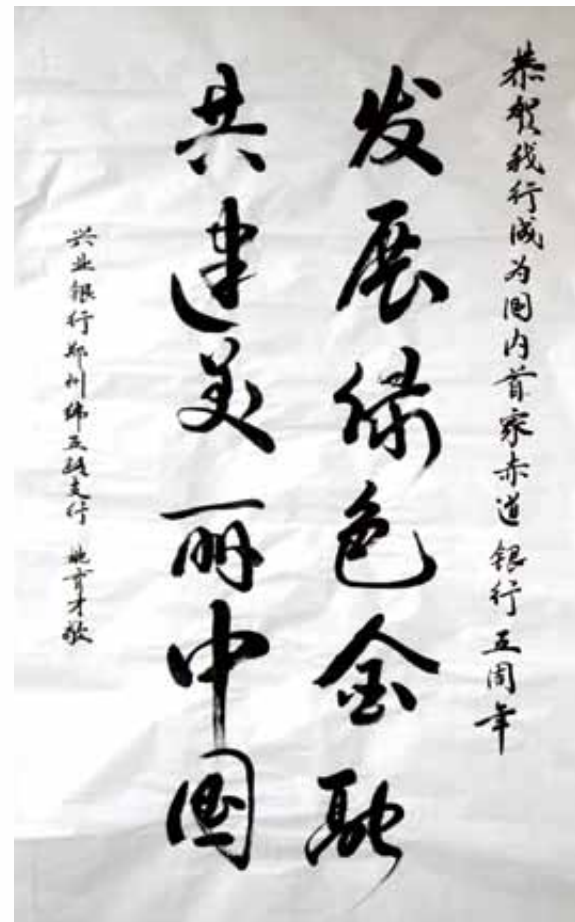 恭贺我行成为国内首家赤道银行五周年
发展绿色金融
共建美丽中国
兴业银行郑州纬五路支行 姚育才敬